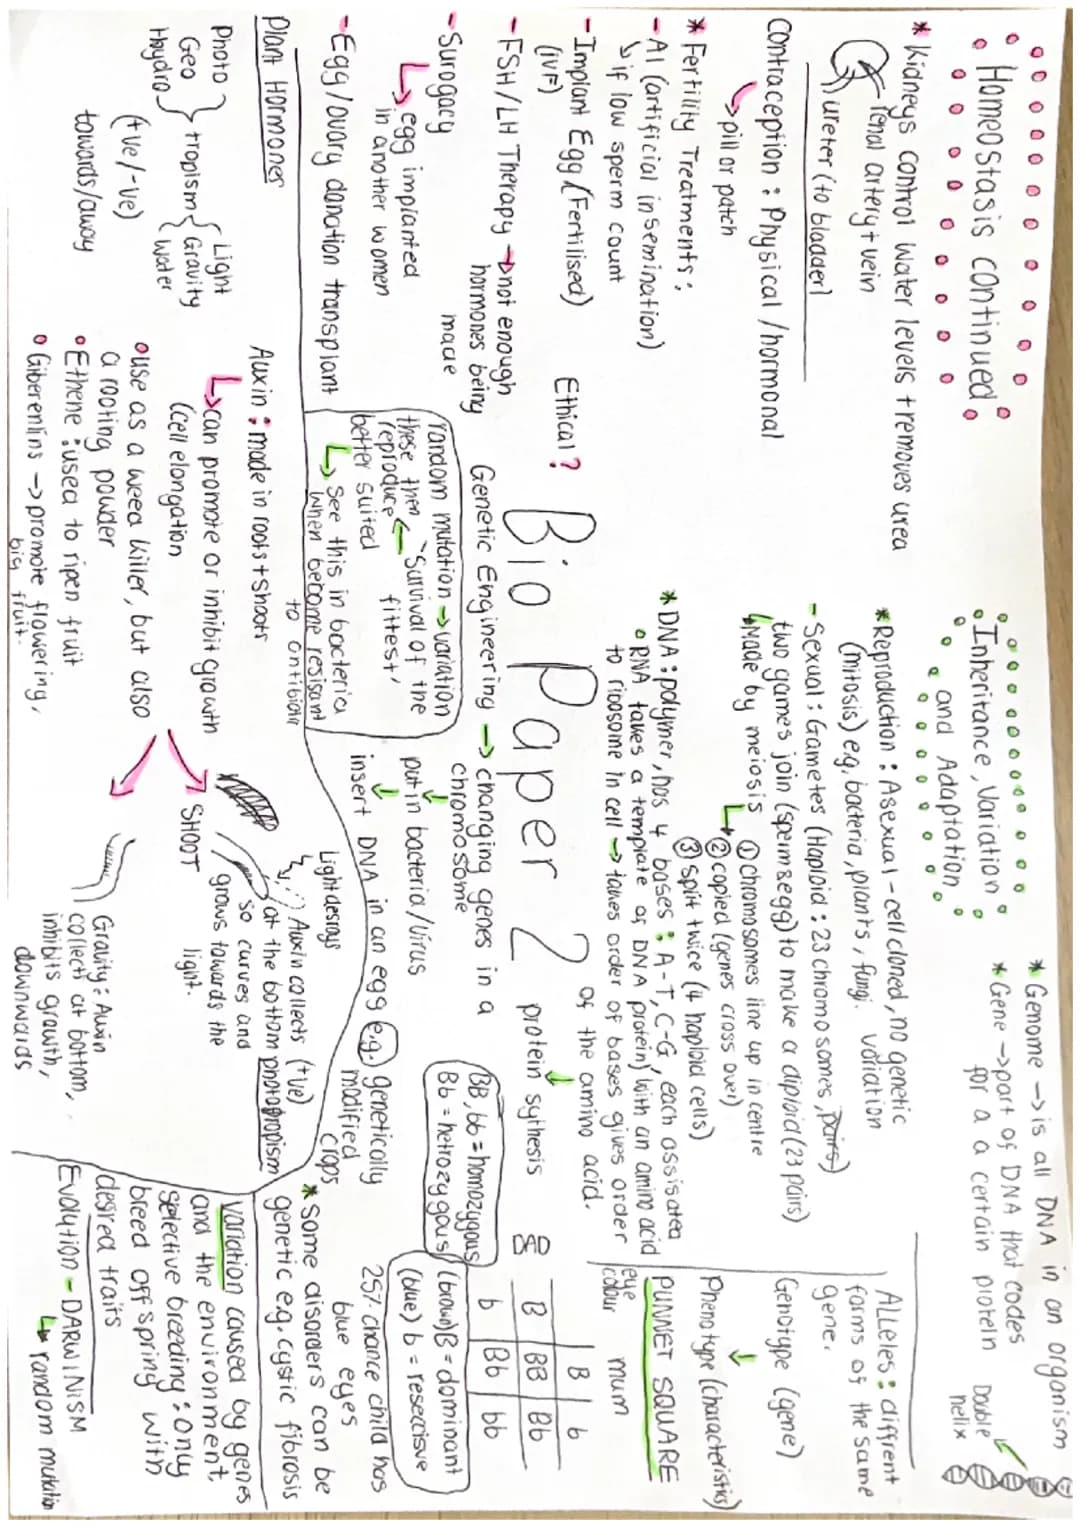 Homeostasis continued
* Kidneys control water levels + removes urea
renal artery + vein
ureter (to bladder)
contraception : Physical / hormonal
pill or patch
* Fertility Treatments :
- AI (artificial insemination)
if low sperm count
- Implant Egg (Fertilised)
(IVF)
Ethical?
- FSH/LH Therapy → not enough
hormones being
made
- Surogacy
egg implanted
in another women
- Egg/ovary donation transplant
Inheritance, Variation
and Adaptation
* Reproduction : Asexual - cell cloned, no genetic
(mitosis) eg, bacteria, plants, fungi. variation
- Sexual : Gametes (Haploid : 23 chromosomes, pairs)
two games join (sperm & egg) to make a diploid (23 pairs)
Made by meiosis
① chromosomes line up in centre
② copied (genes cross over)
③ split twice (4 haploid cells)
* DNA : polymer, has 4 bases : A-T, C-G, each assisated
RNA takes a template of DNA protein, with an amino acid
to ribosome in cell → takes order of bases gives order
of the amino acid.
protein sythesis
* Genome → is all DNA in an organism
* Gene → part of DNA that codes
for a a certain protein
Double
helix
ALLeles : diffrent
forms of the same
gene.
Genotype (gene)
Phenotype (characteristics)
PUNNET SQUARE
eye
colour
mum
B b
B BB Bb
b Bb bb
BB, bb = homozygous
Bb = hetrozygous
(brown) B = dominant
(blue) b = reseccisve
25% chance child has
blue eyes
* Some disorders can be
genetic e.g. cystic fibrosis
Variation caused by genes
and the environment,
selective breeding : Only
breed offspring with
desired traits
Evolution - DARWINISM
random mutation
Bio Paper 2
Genetic Engineering → changing genes in a
chromosome
put in bacteria/virus
insert DNA in an egg e.g. genetically
modified
crops
random mutation → variation
"Survival of the
fittest'
these then
reproduce
better suited
see this in bacteria
when become resisant
to antibiotic
Plant Hormones
Photo
Geo
Haydro
tropism
Light
Gravity
Water
(+ve/-ve)
towards/away
Auxin : made in roots + shoots
can promote or inhibit growth
(cell elongation
use as a weed killer, but also
a rooting powder
Ethene : used to ripen fruit
Giberenlins → promote flowering,
big fruit.
SHOOT
Light desroys
Auxin collects (+ve)
at the bottom photopropism
so curves and
grows towards the
light.
Gravity : Auxin
collects at bottom,
inhibits growth,
downwards